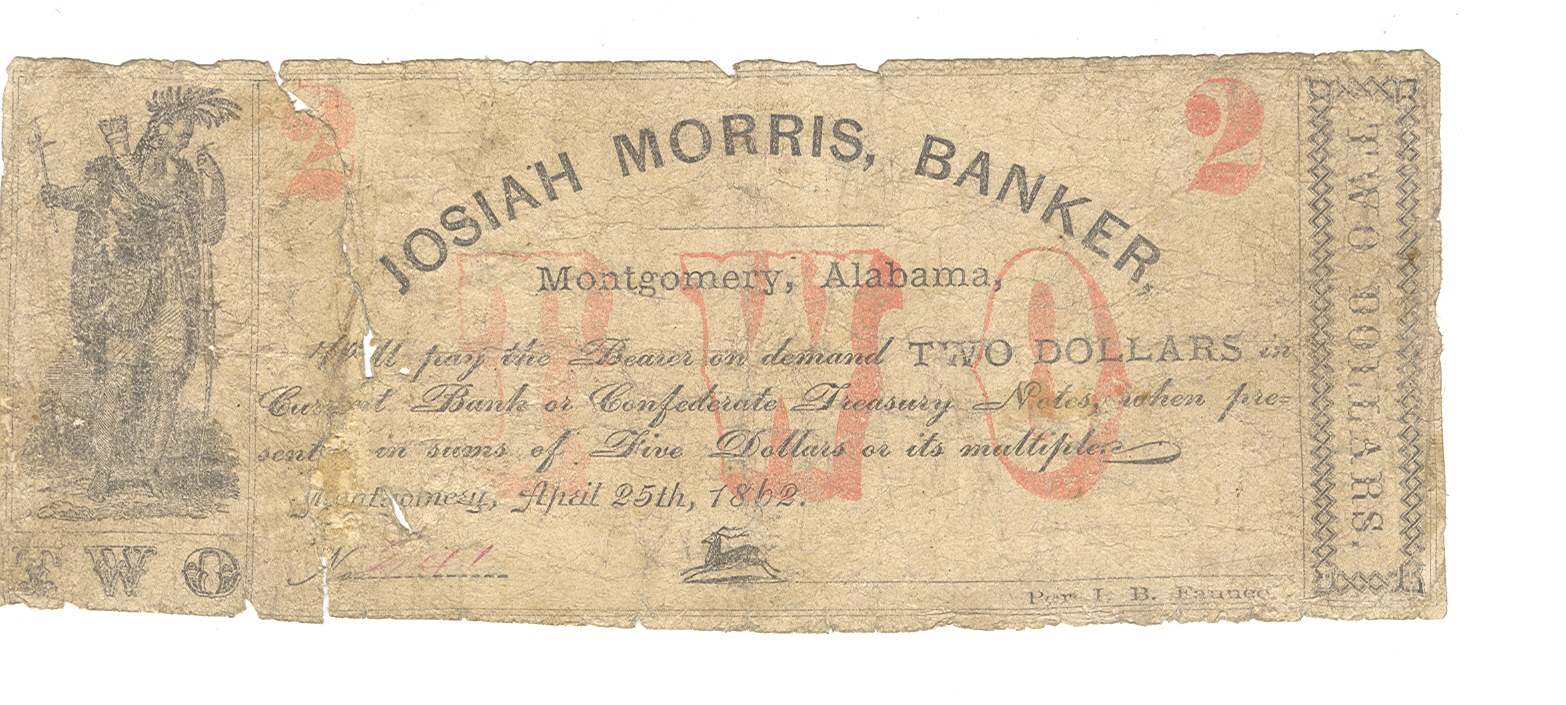 2 2
JOSIAH MORRIS, BANKER,
Montgomery, Alabama,
Will pay the Bearer on demand TWO DOLLARS in
Current Bank or Confederate Treasury Notes, when pre=
sented in sums of Five Dollars or its multiple.
TWO
Montgomery, April 25th, 1862.
No
Per J. B. Faunce.
TWO
TWO DOLLARS.